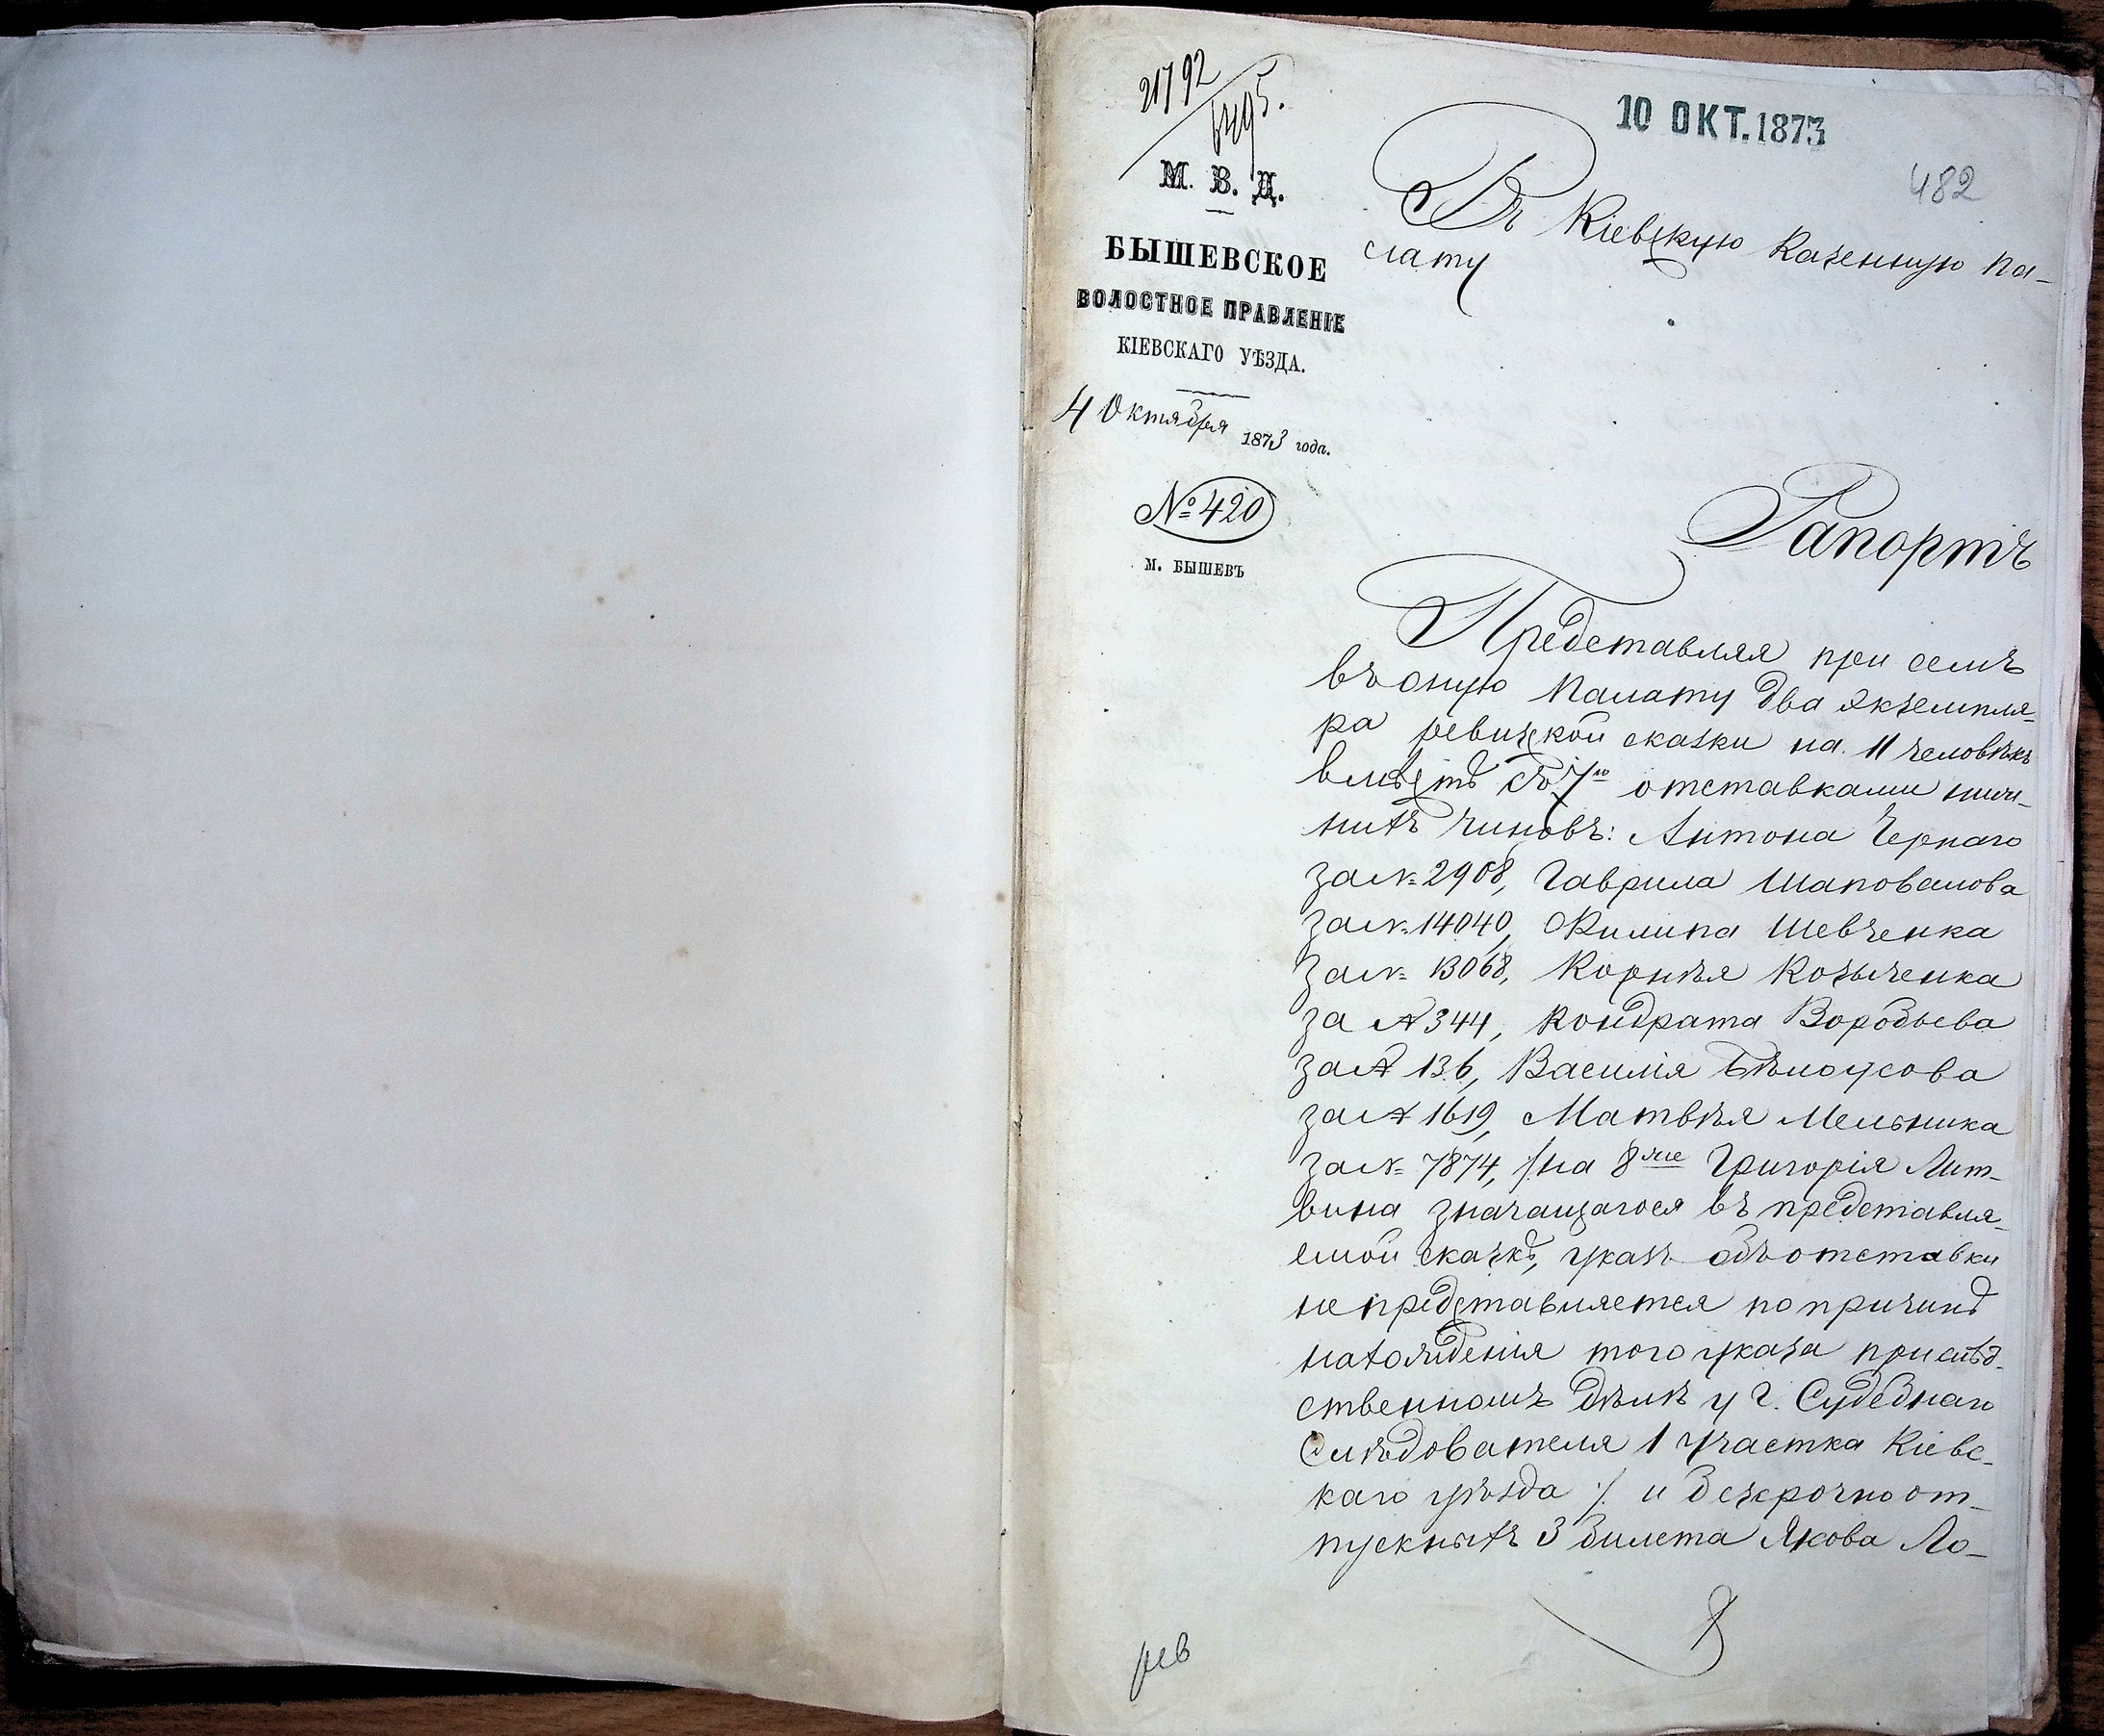 21792
10 ОКТ. 1873
482
М. В. Д.
БЫШЕВСКОЕ
ВОЛОСТНОЕ ПРАВЛЕНІЕ
КІЕВСКАГО УѢЗДА.
4 Октября 1873 года.
№ 420
М. БЫШЕВЪ
Въ Кіевскую Казенную Па-
лату
Рапортъ
Представляя при семъ
въ оную Палату два экземпля-
ра ревизской сказки на 11 человѣкъ
вмѣстѣ съ 7ю отставками ниж-
нихъ чиновъ: Антона Чернаго
за № 2908, Гаврила Шаповалова
за № 14040, Филипа Шевченка
за № 13068, Корнѣя Козыченка
за № 344, Кондрата Воробьева
за № 136, Василія Бѣлоусова
за № 1619, Матвѣя Мельника
за № 7874, /на 8ме Григорія Лит-
вина значащагося въ представля-
емой сказкѣ, указъ объ отставки
не представляется по причинѣ
нахожденія того указа при слѣд-
ственномъ дѣлѣ у г. Судебнаго
Слѣдователя 1 участка Кіевс-
каго уѣзда ./. и безсрочно от-
пускныхъ 3 билета Якова Ло-
рев